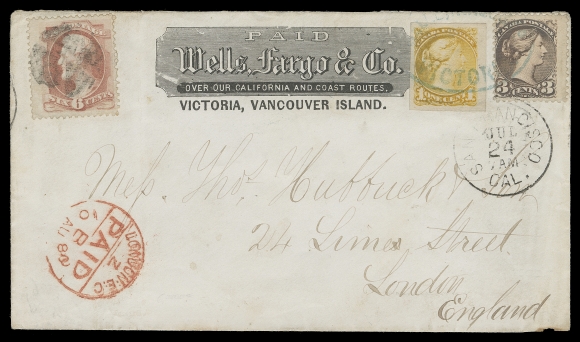 PAID
Wells, Fargo & Co.
OVER OUR CALIFORNIA AND COAST ROUTES.
VICTORIA, VANCOUVER ISLAND.
SIX 6 CENTS
CANADA POSTAGE
3 CENTS 3
SAN FRANCISCO
JUL
24
CAL.
Mess. Thos. Hubbuck &
24 Lime Street
London
England
LONDON-E.C
PAID